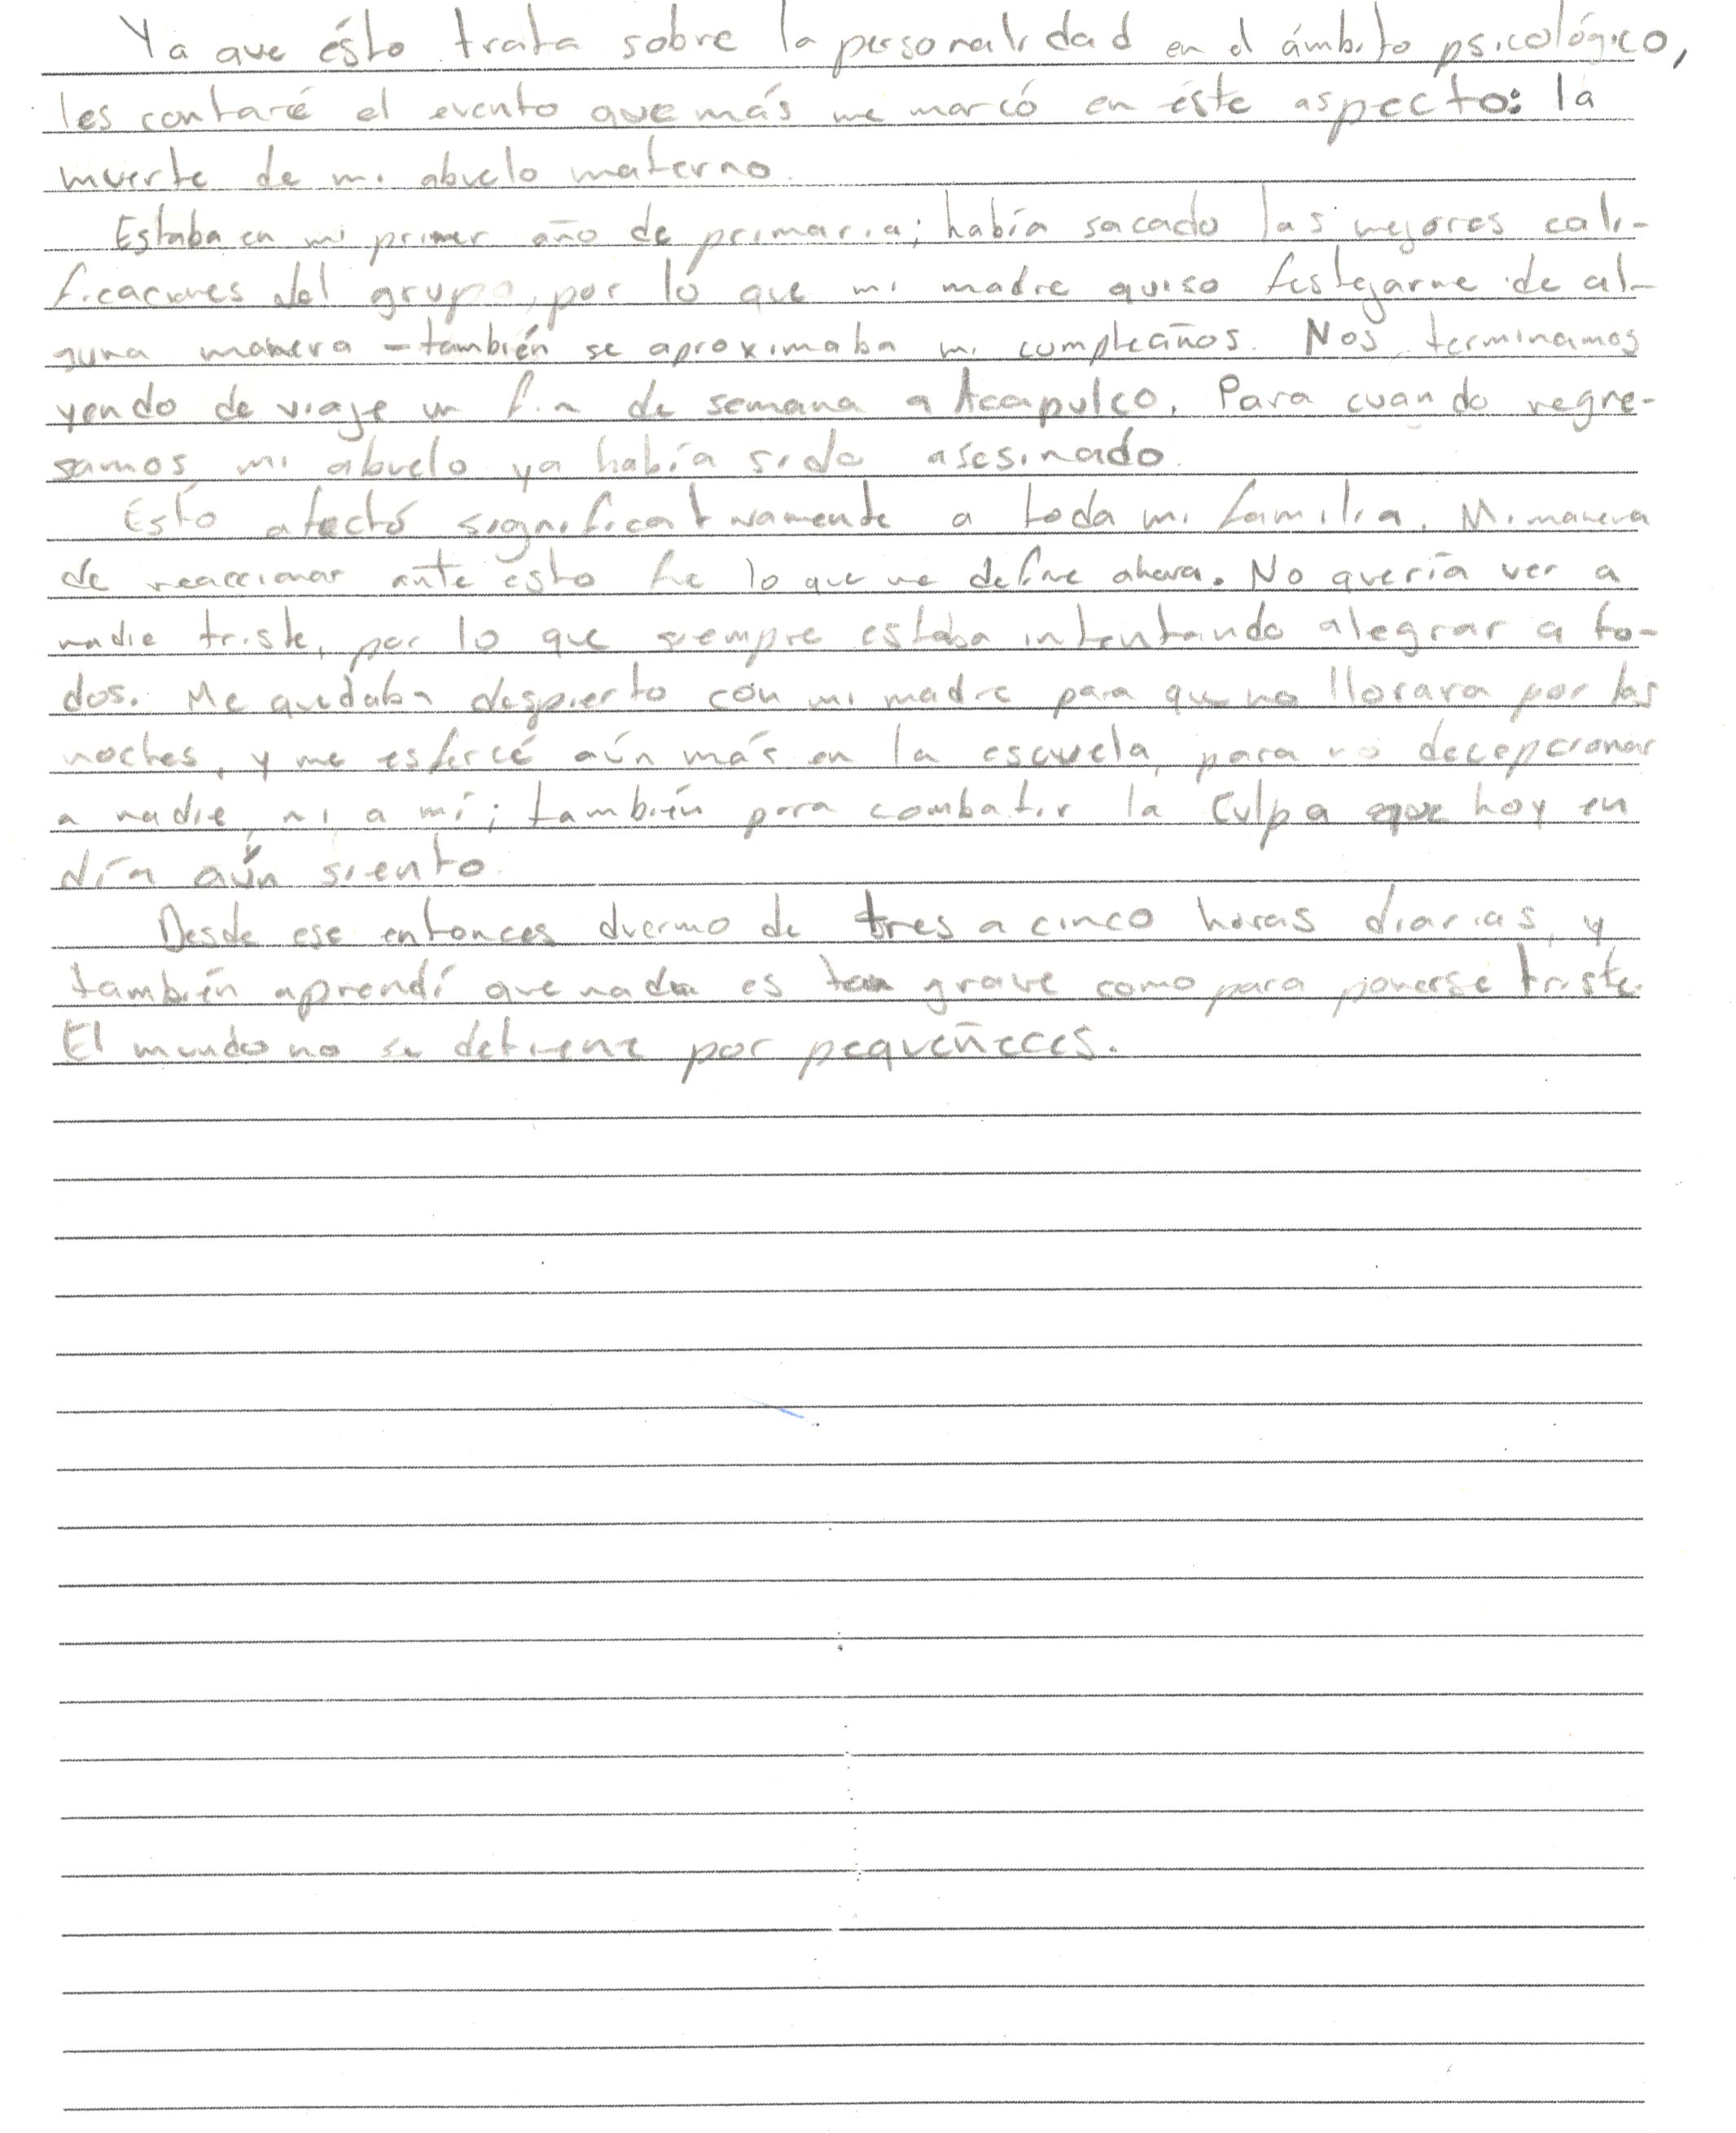 Ya que ésto trata sobre la personalidad en el ámbito psicológico,
les contaré el evento que más me marcó en éste aspecto: la
muerte de mi abuelo materno.
Estaba en mi primer año de primaria; había sacado las mejores cali-
ficaciones del grupo, por lo que mi madre quiso festejarme de al-
guna manera - también se aproximaba mi cumpleaños. Nos terminamos
yendo de viaje un fin de semana a Acapulco. Para cuando regre-
samos mi abuelo ya había sido asesinado.
Esto afectó significativamente a toda mi familia. Mi manera
de reaccionar ante ésto fue lo que me define ahora. No quería ver a
nadie triste, por lo que siempre estaba intentando alegrar a to-
dos. Me quedaba despierto con mi madre para que no llorara por las
noches, y me esforcé aún más en la escuela, para no decepcionar
a nadie, ni a mí; también para combatir la culpa que hoy en
día aún siento.
Desde ese entonces duermo de tres a cinco horas diarias, y
también aprendí que nada es tan grave como para ponerse triste.
El mundo no se detiene por pequeñeces.